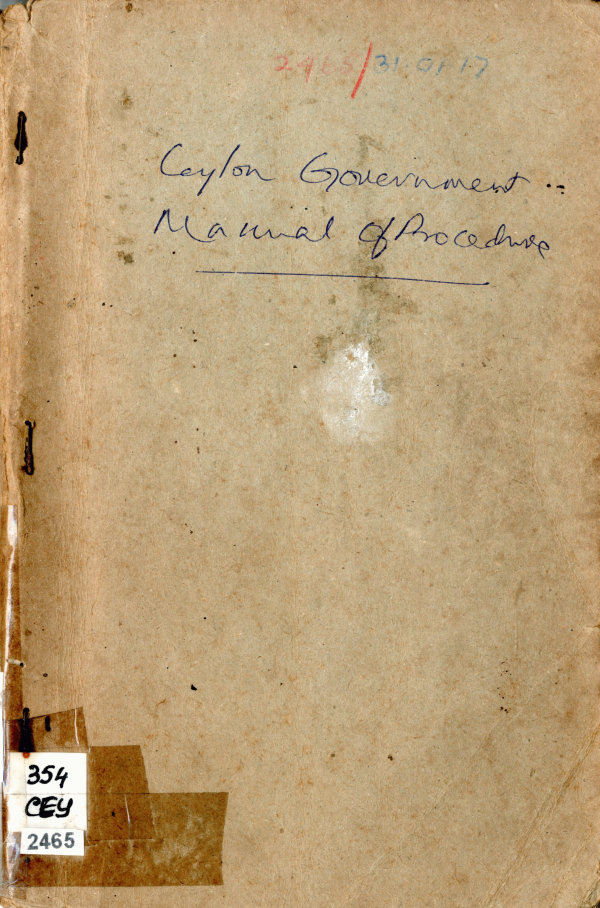 2465/31.01.17
Ceylon Government
Manual of Procedure
354
CEY
2465